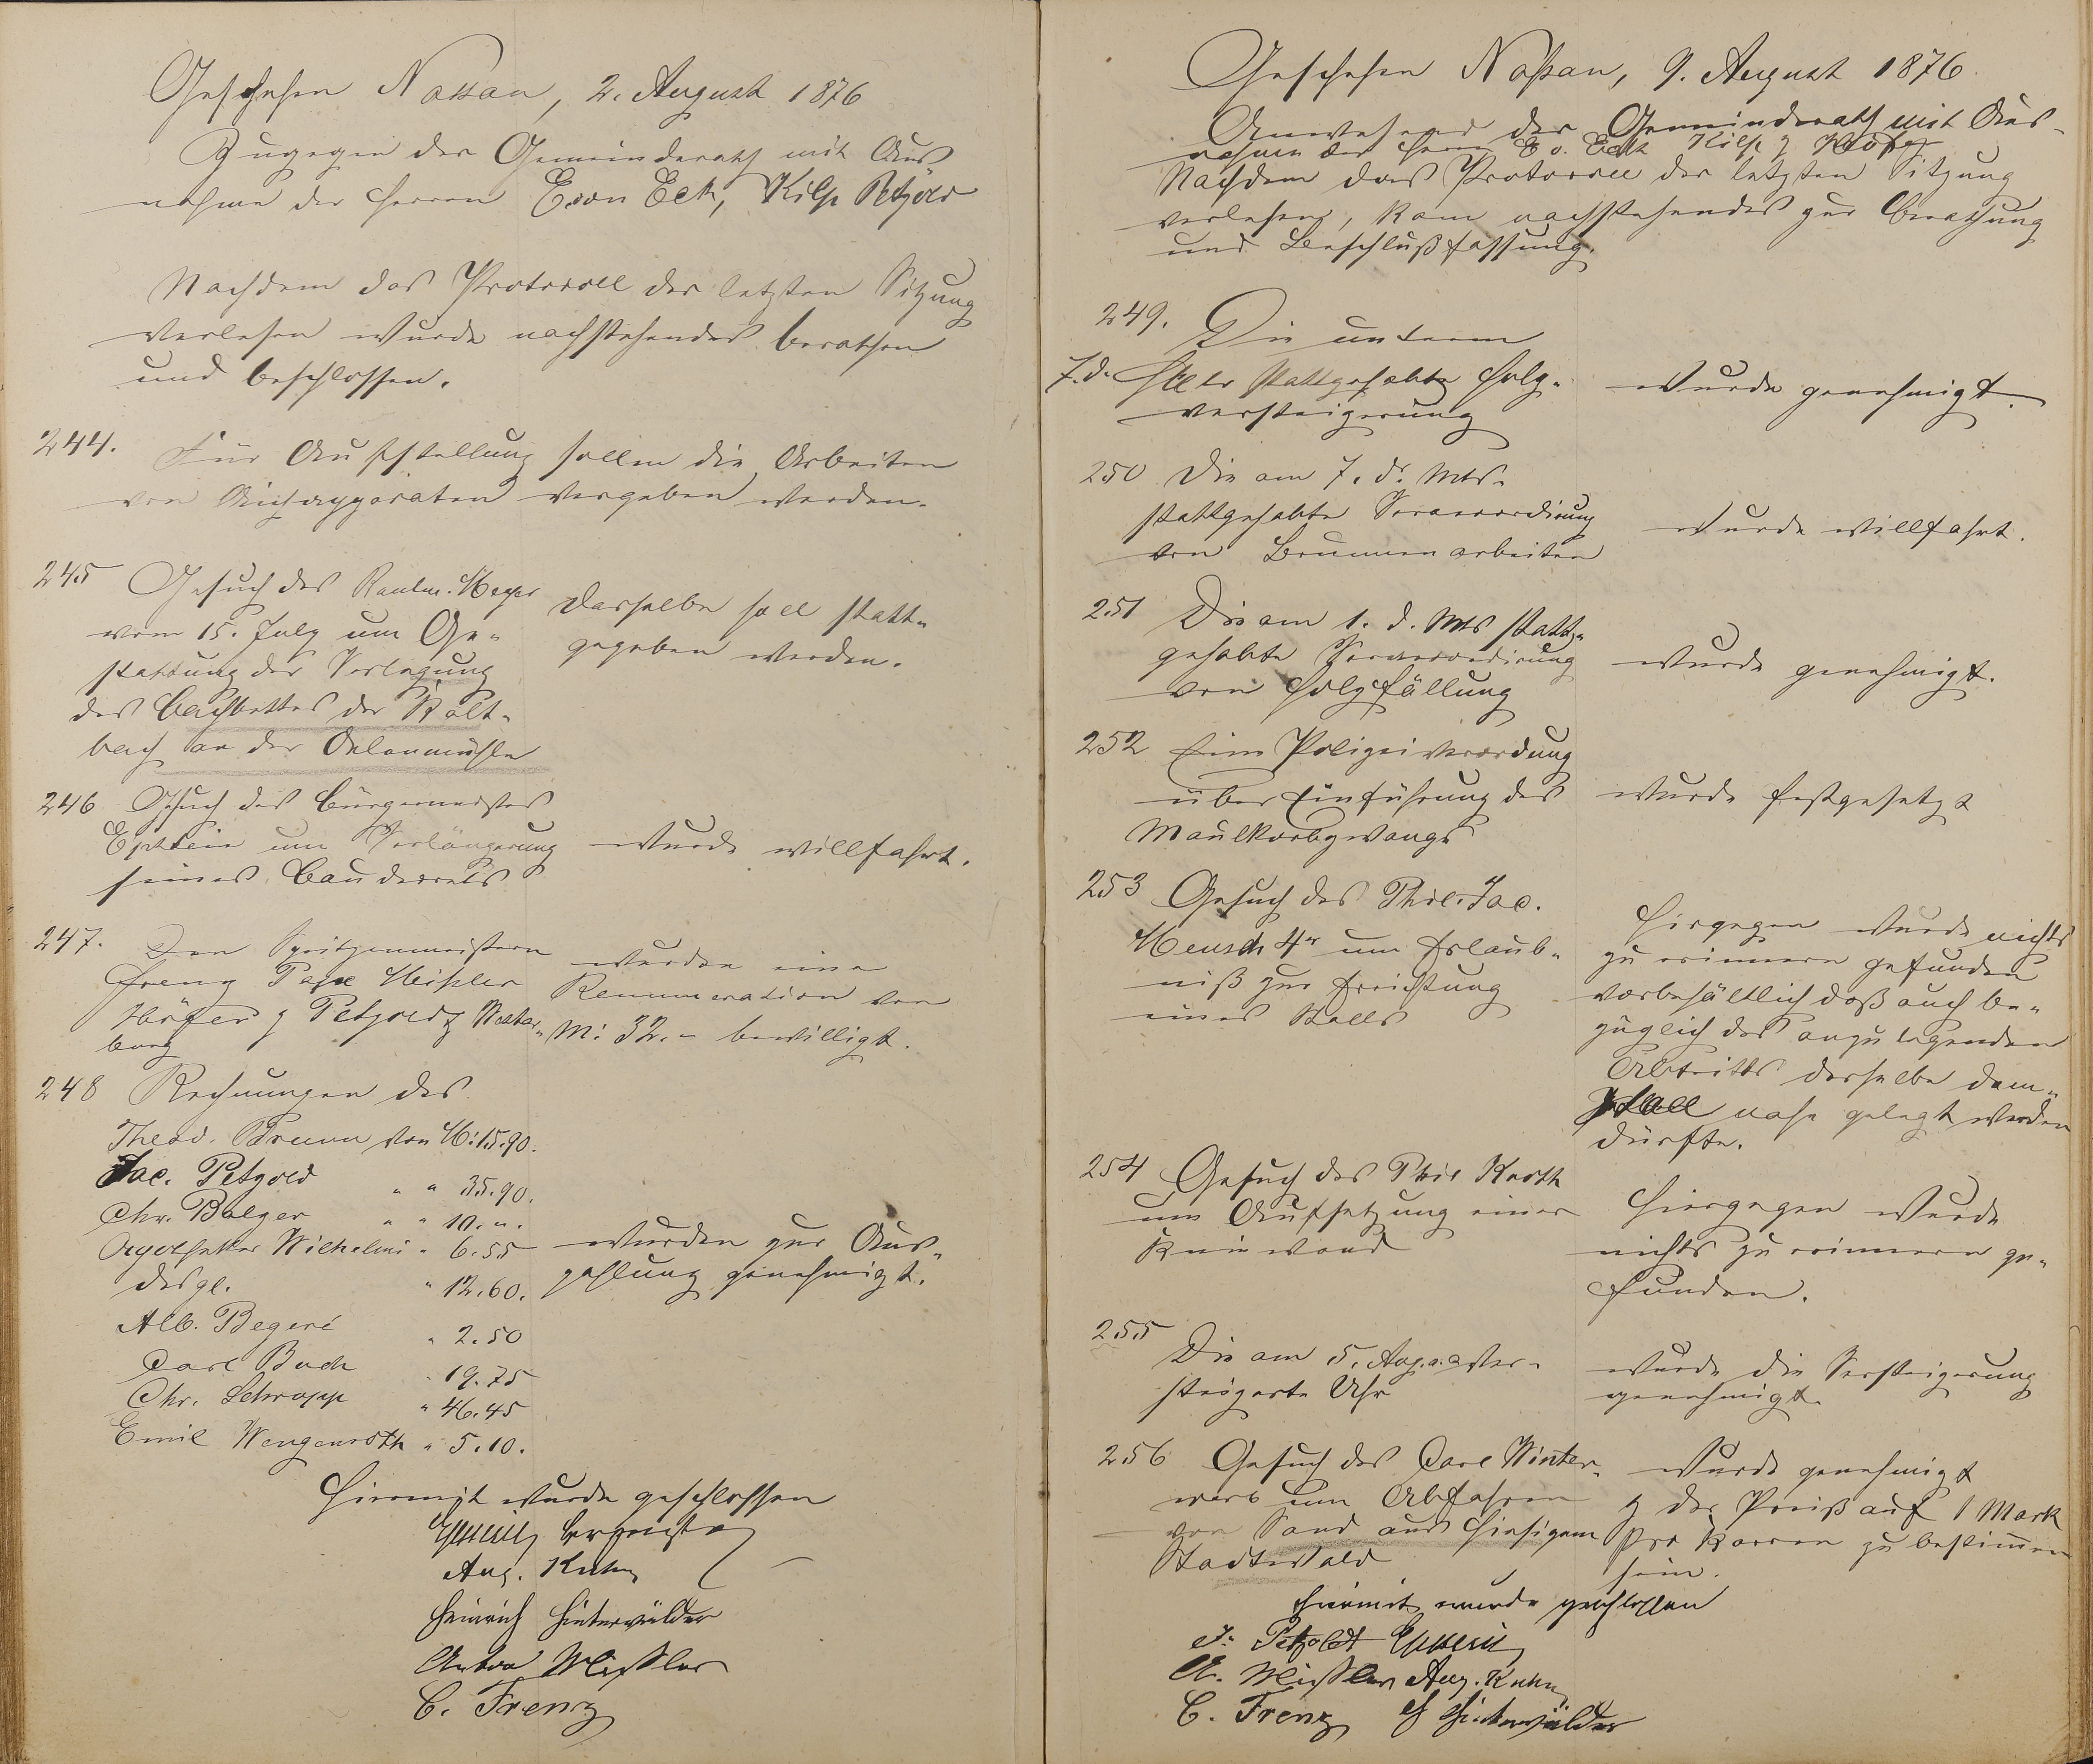 Geschehen Nassau, 2. August 1876
Zugegen der Gemeinderath mit Aus
nahme der Herren E. von Eck, Kilp Petzold
Nachdem das Protocoll der letzten Sitzung
verlesen wurde nachstehendes berathen
und beschlossen.
244. Für Aufstellung sollen die Arbeiten
von Aichapparaten vergeben werden.
245 Gesuch des Raulm. Meyer
vom 15. July um Ge-
stattung der Verlegung
des Bachbettes der Kalt-
bach an der Oelenmühle
Dasselbe soll statt-
gegeben werden.
246 Gesuch des Bürgermeister
Epstein um Verlängerung
seines Baudecrets
wurde willfahrt.
247. Den Spritzenmeistern
Frenz Pape Meisler
Höfer & Petzold & Welter-
burg
wurden eine
Remuneration von
M: 32.- bewilligt.
248 Rechnungen des
Theod. Brunn von M: 15.90.
Jac. Petzold " " 35.90.
Chr. Balzer " " 10.".
Wilhelmi " 6.55
desgl. " 12.60.
Alb. Begeré " 2.50
Carl Buch " 19.75
Chr. Schrupp " 46.45
Emil Wengenroth " 5.10.
wurden zur Aus-
zahlung genehmigt.
Hiermit wurde geschlossen
Aug. Kuhn
Heinrich Hinterwälder
Anton Meißler
C. Frenz
Geschehen Naßau, 9. August 1876.
Anwesend der Gemeinderath mit Aus-
nahme der Herrn E v. Eck Kilp & Höfer
Nachdem das Protocoll der letzten Sitzung
verlesen, kam nachstehendes zur Berathung
und Beschlußfassung.
249. Die unterm
7. d. Mts stattgehabte Holz-
versteigerung
wurde genehmigt.
250 Die am 7. d. Mts.
stattgehabte Veraccordirung
von Brunnenarbeiten
wurde willfahrt.
251 Die am 1. d. Mts statt-
gehabte Veraccordirung
von Holzfällung
wurde genehmigt.
252 Eine Polizeiverordung
über Einführung des
Maulkorbzwangs
wurde festgesetzt
253 Gesuch des Phil. Jac.
Meusch 4r um Erlaub-
niß zur Errichtung
eines Stalls
Hiergegen wurde nichts
zu erinnern gefunden
vorbehältlich daß auch be-
züglich des anzulegenden
Abtritts derselbe dem
Stall nahe gelegt werden
dürfte.
254 Gesuch des Phil Korth
um Aufsetzung einer
Kniewand
Hiergegen wurde
nichts zu erinnern ge-
funden.
255 Die am 5. Aug. a. c. ver-
steigerte Uhr
wurde die Versteigerung
genehmigt.
256 Gesuch des Carl Winter-
werb um Abfahren
von Sand aus hiesigem
Stadtwald
wurde genehmigt
& der Preiß auf 1 Mark
pro Karren zu bestimen
sein.
Hiermit wurde geschlossen
J. Petzoldt Epstein
A. Meißler Aug. Kuhn
C. Frenz H Hinterwälder